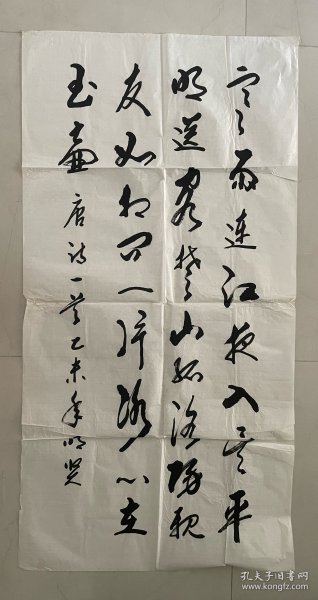 寒雨连江夜入吴平
明送客楚山孤洛阳亲
友如相问一片冰心在
玉壶 唐诗一首 乙未年明
孔夫子旧书网
www.kongfz.com